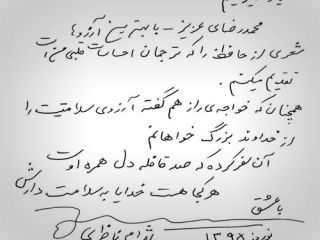 محمدرضای عزیز – با بهترین آرزوها
شعری از حافظ را که ترجمان احساسات قلبی من است
تقدیم میکنم.
همچنان که خواجه‌ی راز هم گفته آرزوی سلامتیت را
از خداوند بزرگ خواهانم
آن سفر کرده که صد قافله دل همره اوست
هر کجا هست خدایا به سلامت دارش
با عشق
نوروز ۱۳۹۵